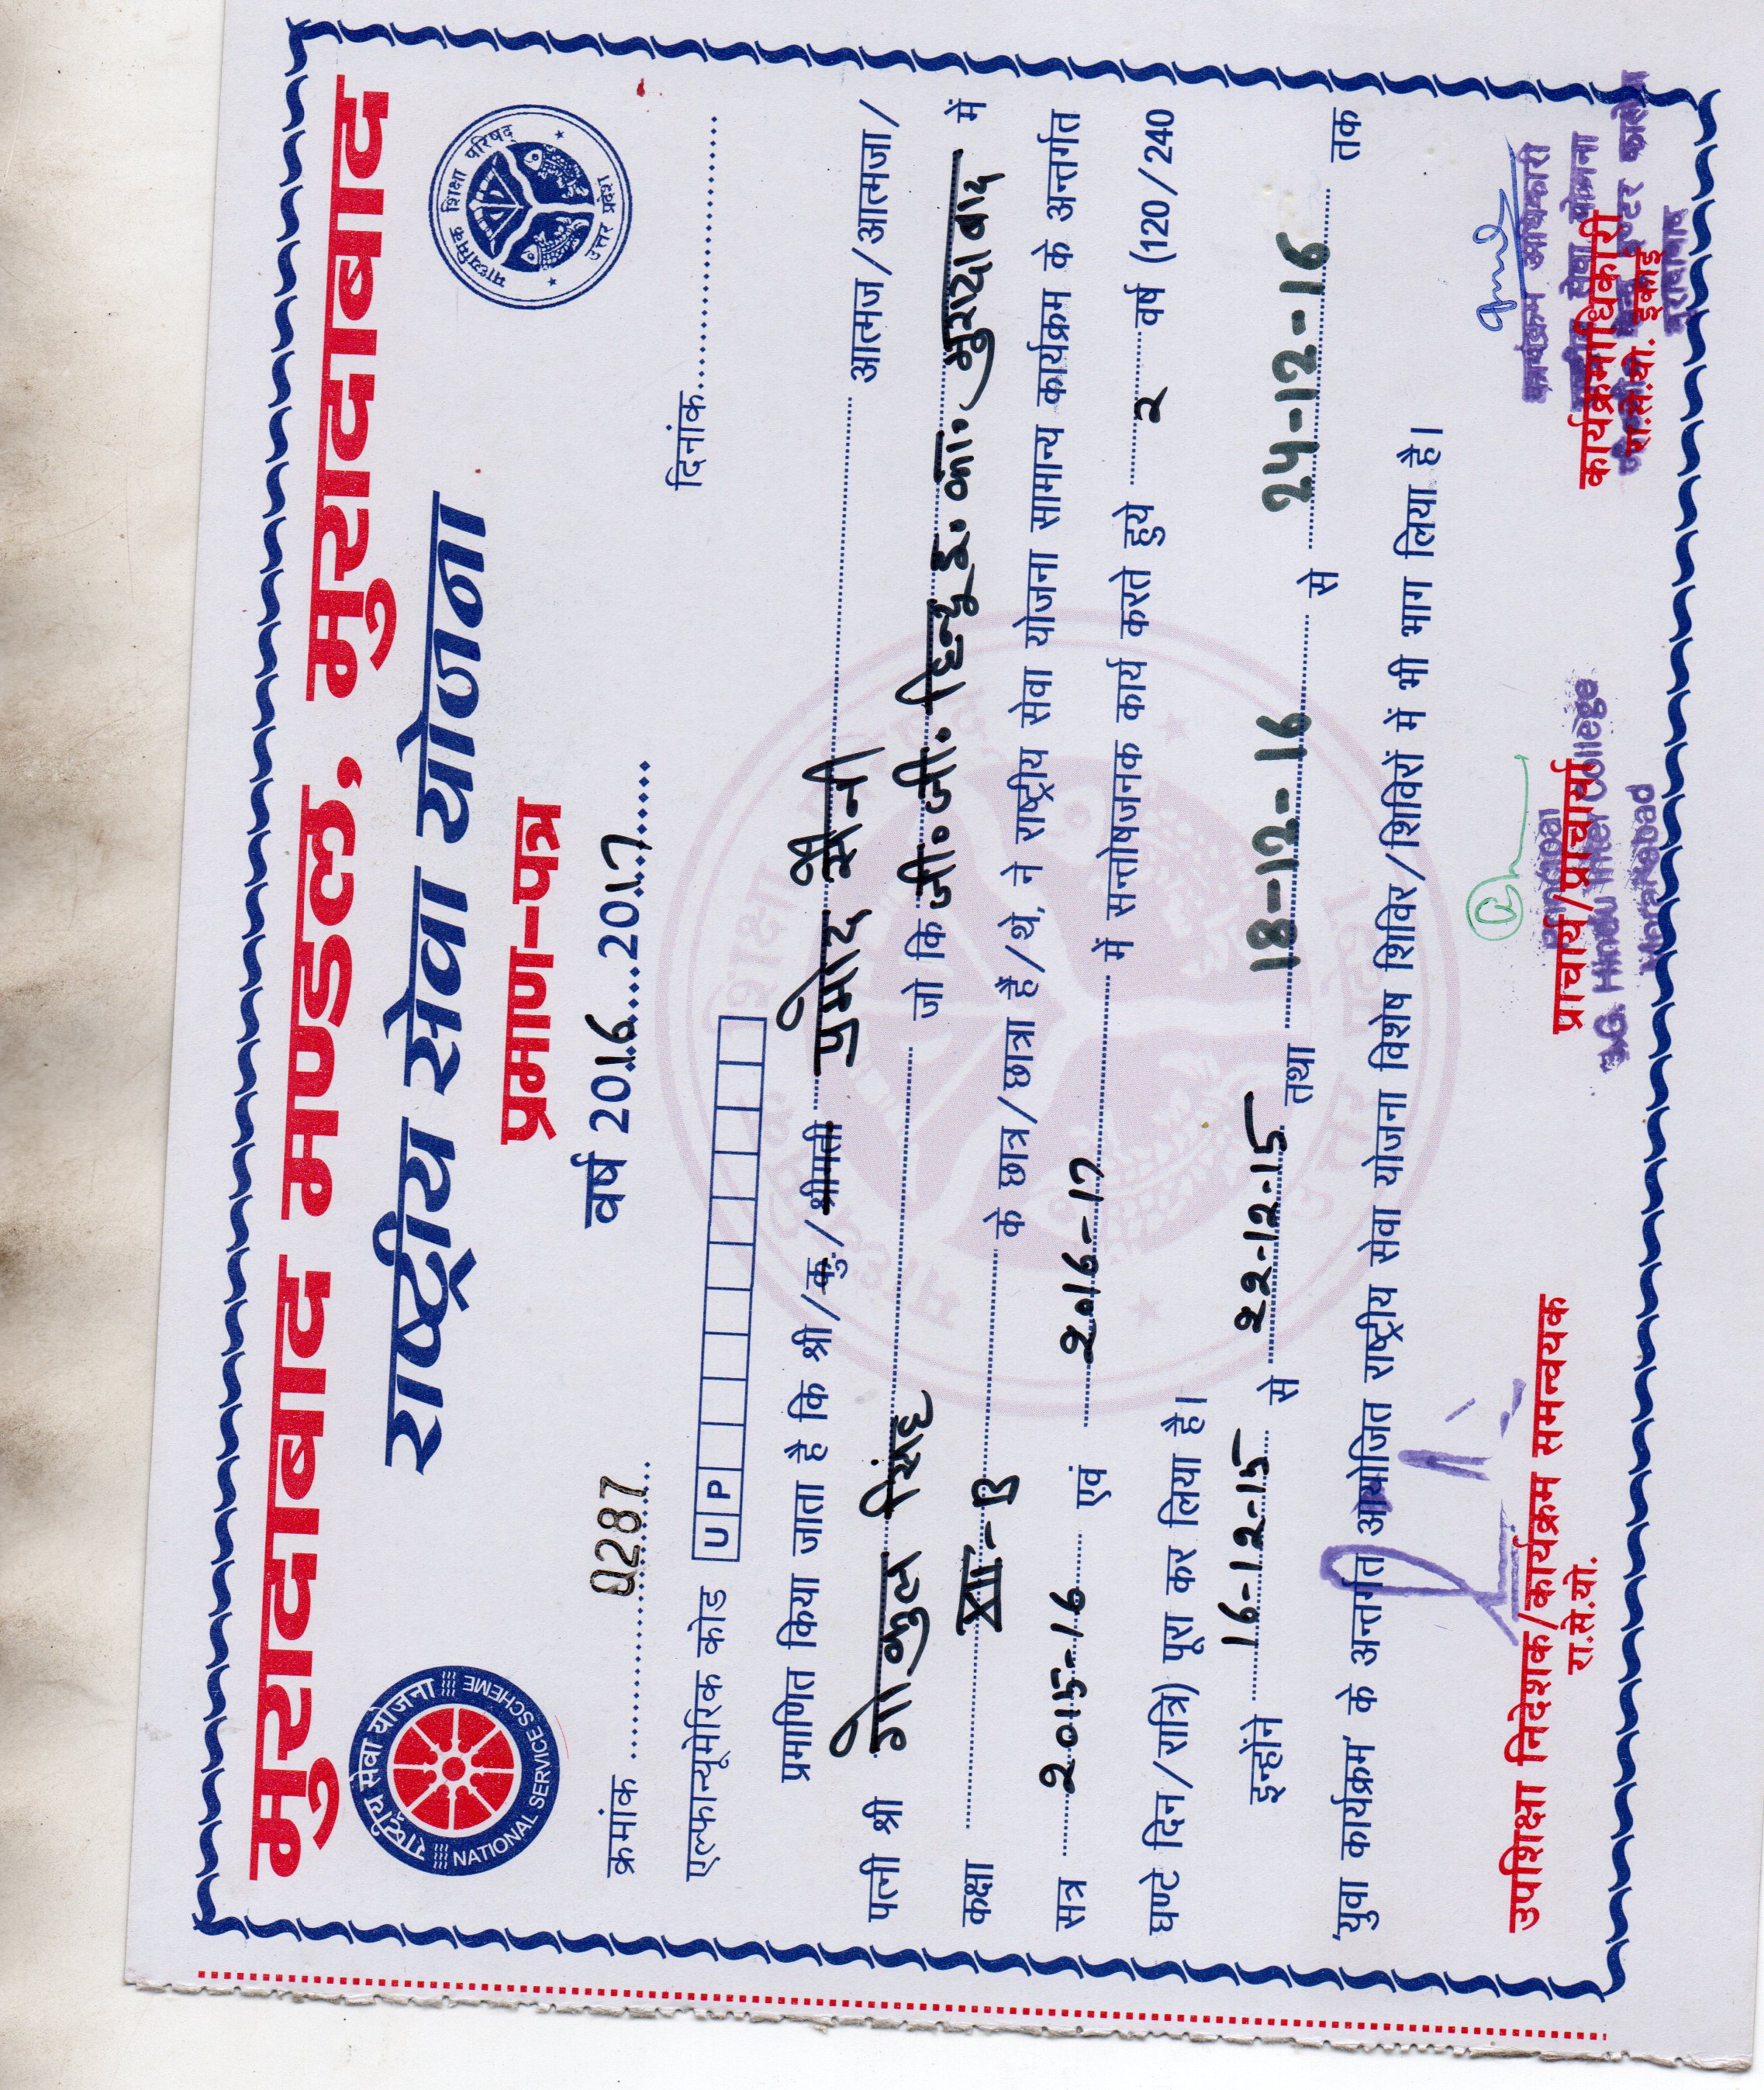 मुरादाबाद मण्डल, मुरादाबाद
राष्ट्रीय सेवा योजना
राष्ट्रीय सेवा योजना
NATIONAL SERVICE SCHEME
माध्यमिक शिक्षा परिषद्
उत्तर प्रदेश
प्रमाण-पत्र
वर्ष 2016.....2017.....
क्रमांक ..........0287..........
दिनांक..............................
एल्फान्यूमेरिक कोड U P
प्रमाणित किया जाता है कि श्री/कु./श्रीमती प्रमोद सैनी आत्मज/आत्मजा/
पत्नी श्री गोकुल सिंह जो कि जी. जी. हिन्दू इ. का. मुरादाबाद में
कक्षा XII-B के छात्र/छात्रा हैं/थे, ने राष्ट्रीय सेवा योजना सामान्य कार्यक्रम के अन्तर्गत
सत्र 2015-16 एवं 2016-17 में सन्तोषजनक कार्य करते हुये 2 वर्ष (120/240
घण्टे दिन/रात्रि) पूरा कर लिया है।
इन्होंने 16-12-15 से 22-12-15 तथा 18-12-16 से 24-12-16 तक
'युवा कार्यक्रम' के अन्तर्गत आयोजित राष्ट्रीय सेवा योजना विशेष शिविर/शिविरों में भी भाग लिया है।
उपशिक्षा निदेशक/कार्यक्रम समन्वयक
रा.से.यो.
Principal
प्राचार्य/प्राचार्या
G.G. Hindu Inter College
Moradabad
कार्यक्रम अधिकारी
राष्ट्रीय सेवा योजना
कार्यक्रमाधिकारी
रा.से.यो. इकाई
मुरादाबाद